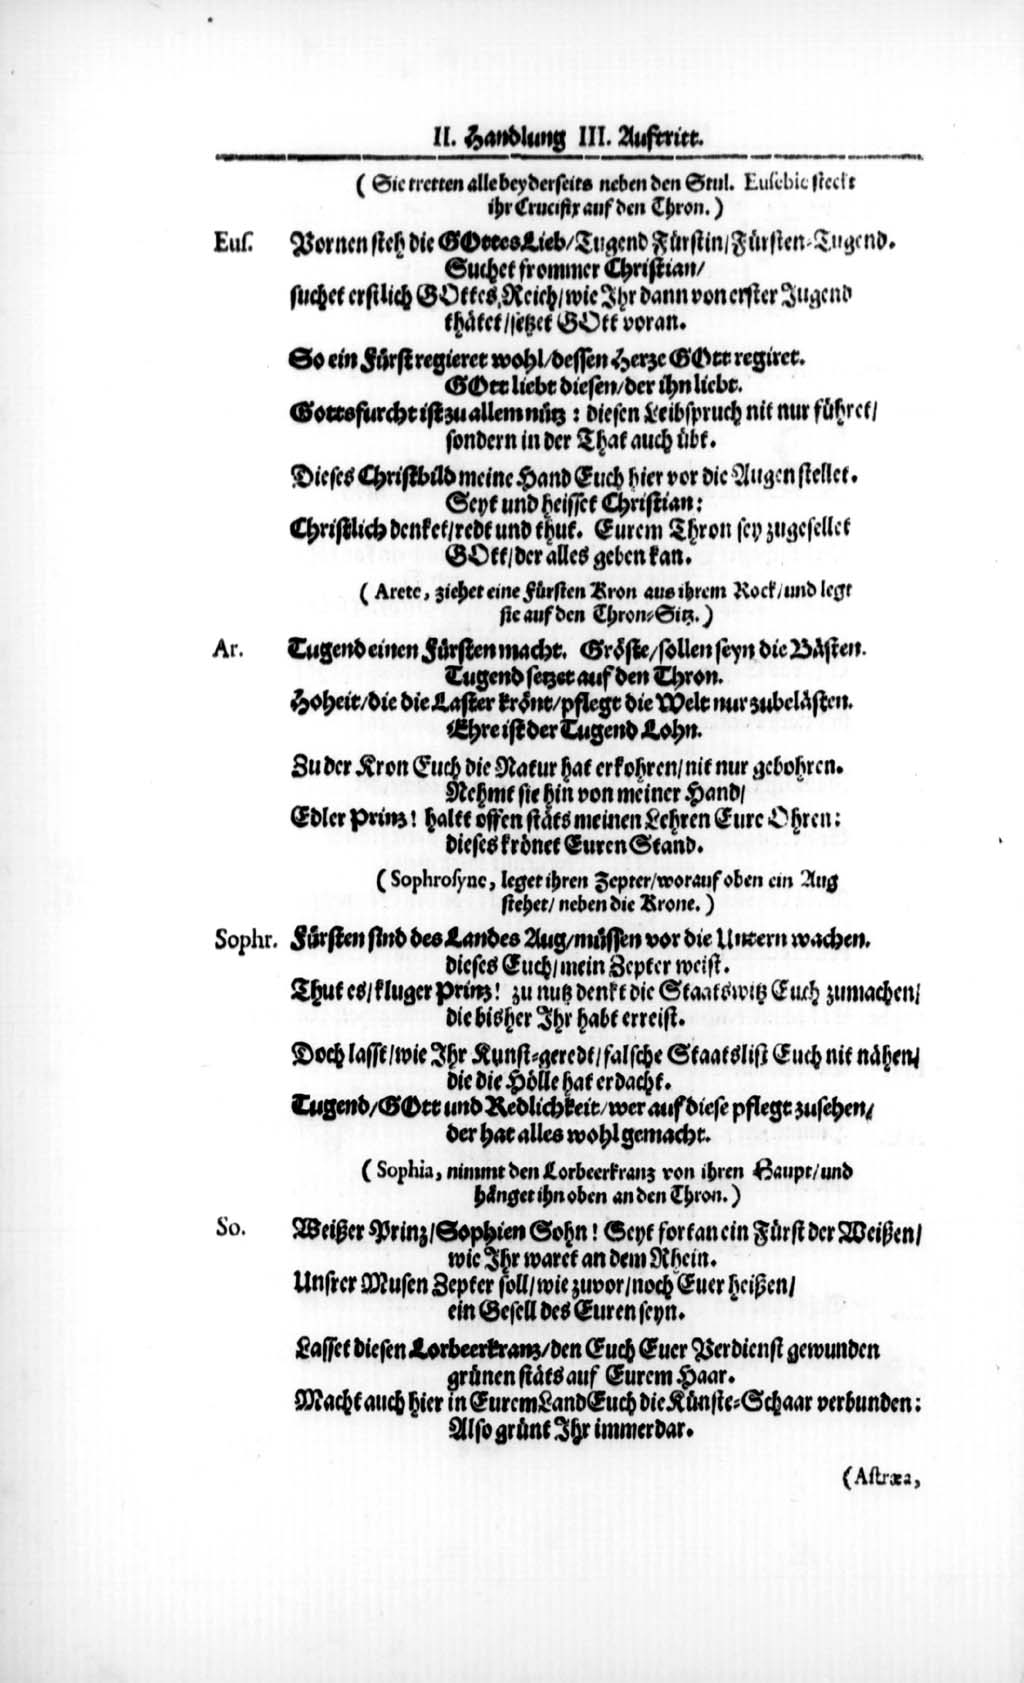 II. Handlung III. Auftritt.
( Sie tretten alle beyderseits neben den Stul. Eusebie steckt
ihr Crucifix auf den Thron. )
Eus. Vornen steh die GOttes Lieb/Tugend Fürstin/Fürsten-Tugend.
Suchet frommer Christian/
suchet erstlich GOttes Reich/wie Ihr dann von erster Jugend
thätet/setzet GOtt voran.
So ein Fürst regieret wohl/dessen Herze GOtt regiret.
GOtt liebt diesen/der ihn liebt.
Gottsfurcht ist zu allem nütz : diesen Leibspruch nit nur führet/
sondern in der That auch übt.
Dieses Christbild meine Hand Euch hier vor die Augen stellet.
Seyt und heisset Christian:
Christlich denket/redt und thut. Eurem Thron sey zugesellet
GOtt/der alles geben kan.
( Arete, ziehet eine Fürsten Kron aus ihrem Rock/und legt
sie auf den Thron-Sitz. )
Ar. Tugend einen Fürsten macht. Gröste/sollen seyn die Bästen.
Tugend setzet auf den Thron.
Hoheit/die die Laster krönt/pflegt die Welt nur zubelästen.
Ehre ist der Tugend Lohn.
Zu der Kron Euch die Natur hat erkohren/nit nur gebohren.
Nehmt sie hin von meiner Hand/
Edler Prinz! haltt offen stäts meinen Lehren Eure Ohren:
dieses krönet Euren Stand.
( Sophrosyne, leget ihren Zepter/worauf oben ein Aug
stehet/ neben die Krone. )
Sophr. Fürsten sind des Landes Aug/müssen vor die Untern wachen.
dieses Euch/mein Zepter weist.
Thut es/kluger Prinz! zu nutz denkt die Staatswitz Euch zumachen/
die bisher Ihr habt erreist.
Doch lasst/wie Ihr Kunst-geredt/falsche Staatslist Euch nit nähen/
die die Hölle hat erdacht.
Tugend/GOtt und Redlichkeit/wer auf diese pflegt zusehen/
der hat alles wohl gemacht.
( Sophia, nimmt den Lorbeerkranz von ihren Haupt/und
hänget ihn oben an den Thron. )
So. Weißer Prinz/Sophien Sohn! Seyt fortan ein Fürst der Weißen/
wie Ihr waret an dem Rhein.
Unsrer Musen Zepter soll/wie zuvor/noch Euer heißen/
ein Gesell des Euren seyn.
Lasset diesen Lorbeerkranz/den Euch Euer Verdienst gewunden
grünen stäts auf Eurem Haar.
Macht auch hier in Eurem Land Euch die Künste-Schaar verbunden:
Also grünt Ihr immerdar.
(Astræa,